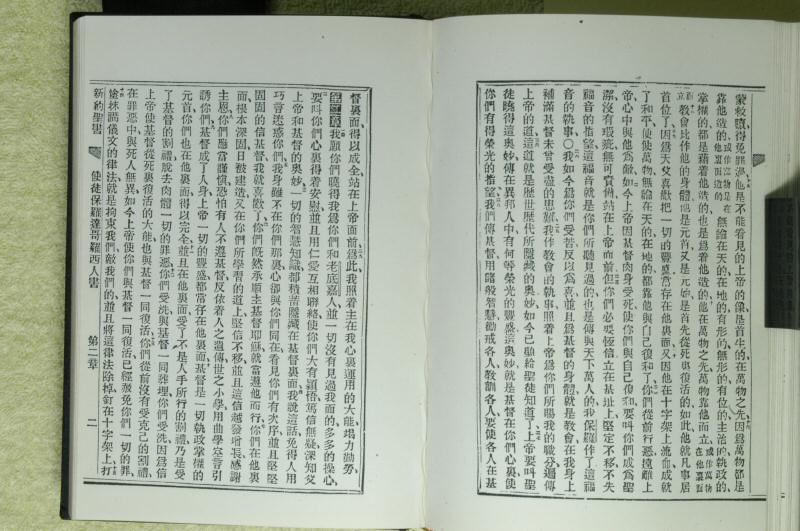 蒙救贖得免罪過他是不能看見的上帝的像是首生的在萬物之先因爲萬物都是
靠他造的無論在天的在地的有形的無形的有位的主治的執政的
掌權的都是藉着他造的也是爲着他造的他在萬物之先萬物靠他而立
教會比作他的身體他是元首又是元始是首先從死裏復活的如此他就凡事居
首位了因爲天父喜歡把一切的豐盛常存在他裏面又因他在十字架上流血成就
了和平便使萬物無論在天的在地的都靠他與自己復和了你們從前行惡遠離上
帝心中與他爲敵如今上帝因基督肉身受死使你們與自己復和要叫你們成爲聖
潔沒有瑕疵無可責備站在上帝面前但你們必要恆信立在基址上堅定不移不失
福音的指望這福音就是你們所聽見過的也是傳與天下萬人的我保羅作了這福
音的執事〇我如今爲你們受苦反以爲喜並且爲基督的身體就是教會在我身上
補滿基督未曾受盡的患難我作教會的執事照着上帝爲你們所賜我的職分遍傳
上帝的道這道就是歷世歷代所隱藏的奧妙如今已顯給聖徒知道了上帝要叫聖
徒曉得這奧妙傳在異邦人中有何等榮光的豐盛這奧妙就是基督在你們心裏使
你們有得榮光的指望我們傳基督用諸般智慧勸戒各人教訓各人要使各人在基
督裏面得以成全站在上帝面前爲此我照着主在我心裏運用的大能竭力勤勞
第二章我願你們曉得我爲你們和老底嘉人並一切沒有見過我面的多多的操心
要叫你們心裏得着安慰並且用仁愛互相聯絡使你們大有領悟篤信無疑深知父
上帝和基督的奧妙一切的智慧知識都積蓄隱藏在基督裏面我說這話免得人用
巧言迷惑你們我身雖不在你們那裏心卻與你們同在看見你們有次序並且堅堅
固固的信基督我就喜歡了你們既然承順主基督耶穌就當遵他而行你們在他裏
面根本深固日被建造又在你們所學習的道上堅信不移並且這信越發增長感謝
主恩你們應當謹愼恐怕有人不遵基督反依着人之遺傳世之小學用曲學空言引
誘你們基督成了人身上帝一切的豐盛都常存在他裏面基督是一切執政掌權的
元首你們也在他裏面得以完全並且在他裏面受了不是人手所行的割禮乃是受
了基督的割禮脫去肉體一切的罪惡你們受洗與基督一同葬埋你們受洗因爲信
上帝使基督從死裏復活的大能也與基督一同復活你們從前沒有受克己的割禮
在罪惡中與死人無異如今上帝使你們與基督一同復活已經赦免你們一切的罪
塗抹講儀文的律法就是拘束我們敵我們的並且將這律法除掉釘在十字架上打
新約聖書 使徒保羅達哥羅西人書 第二章 二